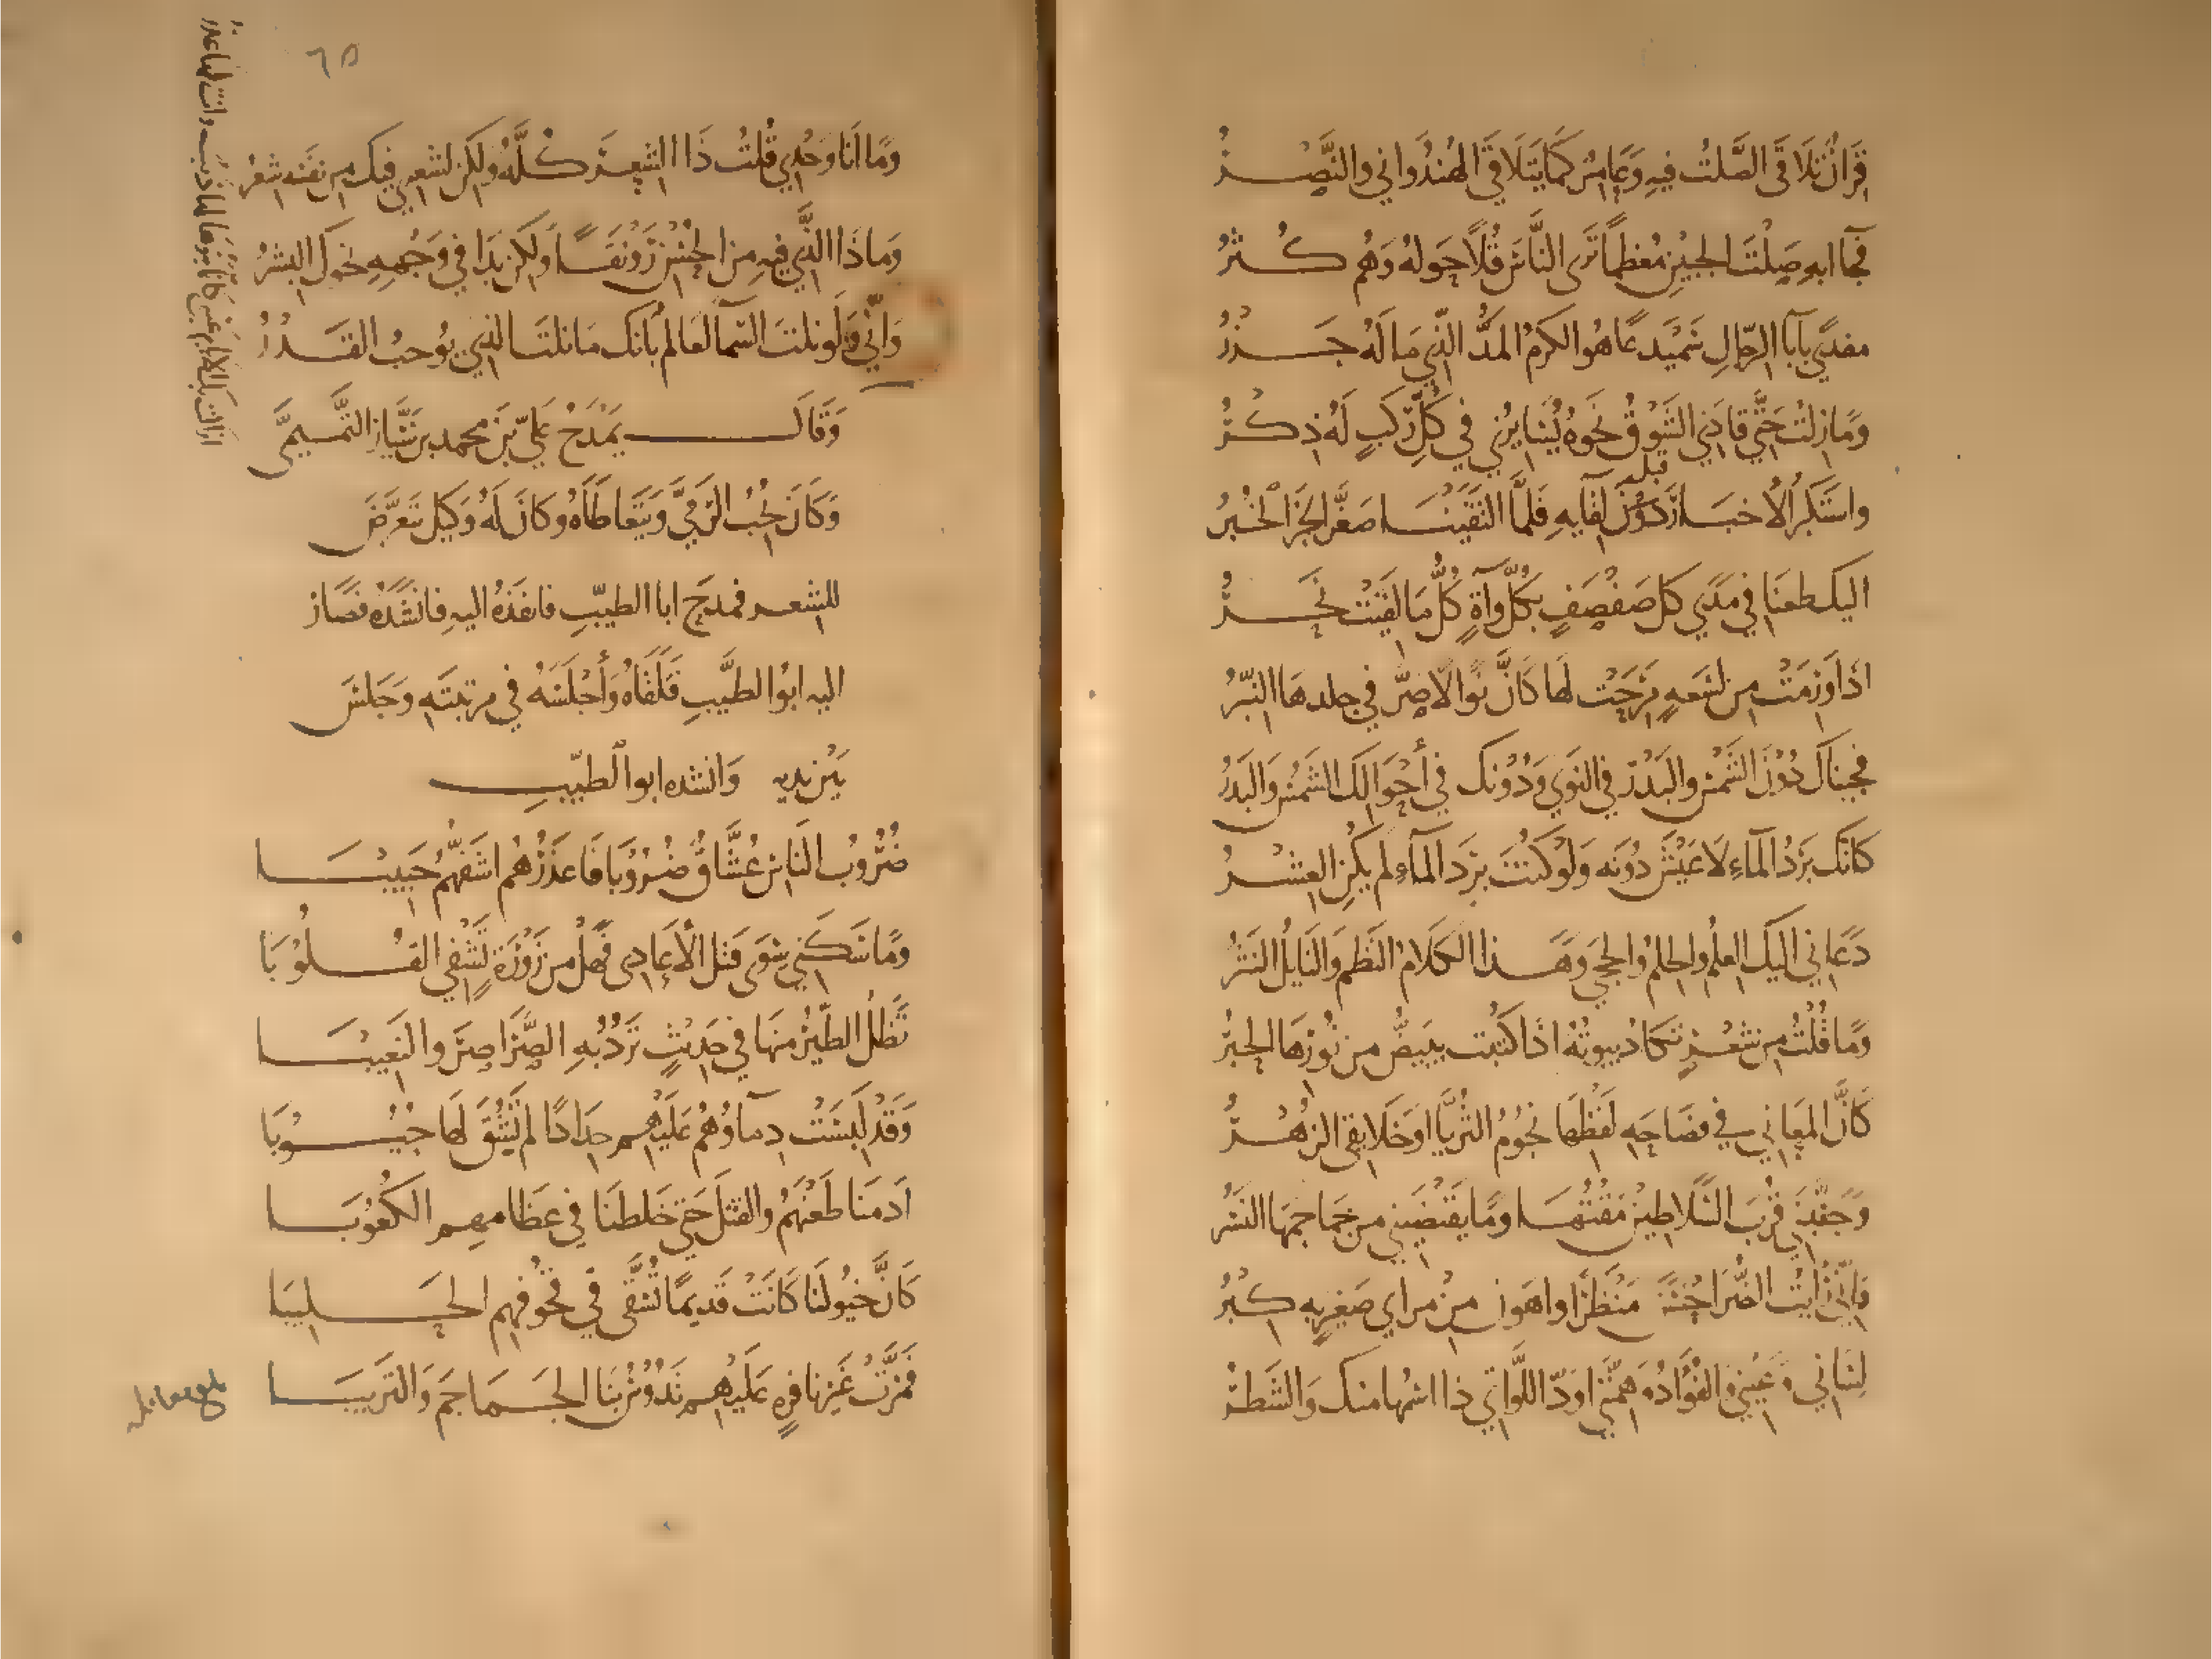 قِرَانٌ تَلَاقَى الصَّلتُ فِيهِ وَعَامِرٌ كَمَا يَتَلَاقَى الهُنْدُوَانِي وَالنَّصْرُ
فجآ ابهِ صَلْتَ الجَبِينِ مُعَظَّمًا تَرَى النَّاسَ قُلًّا حَوله وَهُم كُثْرُ
مفدّى بآبا الرّجالِ سَمَيْدَعًا هُوَ الكَرَمُ المَدُّ الّذِي مَا لَهُ جَزْرُ
وَمَا زِلْتُ حَتَّى قَادَنِي الشَّوْقُ نَحْوَهُ يُسَايِرُنِي فِي كُلِّ رَكْبٍ لَهُ ذِكْرُ
وَاسْتَكْبِرُ الأخبَارَ قبل لِقَايهِ فَلَمَّا التَقَيْنَا صَغَّرَ الخَبَرَ الخُبْرُ
اليك طعنَا فِي مَدَى كل صَفْصَفٍ بِكُلِّ وَآةٍ كُلُّ مَا لَقِيَتْ نَحْرُ
اذَا وَرِمَتْ مِن لَسْعِهِ مَرِحَتْ لَهَا كَانَّ نَوَالًا صَرَّ فِي جِلدِهَا النِّبْرُ
فجيناكَ دُوْنَ الشَّمْسِ وَالبَدْرِ فِي النَوَى وَدُونَكَ فِي أَحْوَالِكَ الشَّمْسُ وَالبَدْرُ
كَانَّكَ بَرْدُ المَاءِ لَا عَيْشَ دُونَه وَلَوْ كُنْتَ بَرْدَ المَآءِ لم يَكُنِ العِشْرُ
دَعَانِي اليكَ العِلْمُ وَالحِلمُ وَالحِجَى وَهَذَا الكَلَامُ النَّظمُ وَالنَايلُ النَثْرُ
وَمَا قُلْتُ مِن شعْرٍ تَكَادُ بيوتُهُ اذَا كُتِبَت يبيضُّ من نُورِهَا الحِبْرُ
كَانَّ المَعَانِي فِي فصَاحَةِ لَفْظِهَا نُجُومُ الثُّرَيَّا اوْ خَلَايِقُكَ الزُهْرُ
وَجَنَّبَنِي قُرْبَ السَّلَاطِينِ مَقْتُهَا وَمَا يَقْتَضِينِي من جَمَاجِمِهَا النَّسْرُ
وَانِّي رَايْتُ الضُّرَّ احْسَنَ مَنْظَرًا وَاهْوَن مِنْ مَراى صَغِيرٍ بِهِ كِبْرُ
لِسَانِي وَعَيْنِي وَالفُؤَادُ وَهِمَّتِي اوَدُّ اللَّوَاتِي ذا اسْمُهَا منكَ وَالشَّطْرُ
٦٥
وَمَا أَنَا وَحْدِي قُلتُ ذَا الشِعْرَ كُلَّهُ وَلكِن لشعري فيك من نفسه شعْرُ
وَمَا ذَا الذي فيهِ من الحُسْنِ رَوْنَقًا وَلكِن بَدَا فِي وَجْهِهِ نحوَكَ البِشْرُ
وَانّي وَلَو نلتَ السّمآ لعَالمٌ بأنك مَا نلتَ الذي يُوجبُ القَدْرُ
وَقَالَ يَمْدَحُ عَلِيَّ بنَ محمد بن سَيَّارٍ التَّمِيمِيَّ
وَكَانَ يُحِبُّ الرَمْيَ وَيَتَعَاطَاهُ وَكَانَ لَهُ وَكيل يتَعَرَّضُ
للشعر فمدح ابا الطيّبِ فانفذهُ اليهِ فانشَدَهُ فصَارَ
اليه ابُوا لطيَّبِ فَتَلَقَّاهُ وَأَجْلَسَهُ فِي مرتبَتهِ وَجَلسَ
بَيْن يديه وَانشده ابوا لطيّبِ
ضُرُوبُ النَاسِ عُشَّاقٌ ضُرُوبَا فَاعذَرُهُم اشَفُّهُمُ حَبِيبَا
وَمَا سَكَنِي سِوَى قَتل الأَعَادِى فَهَلْ من زَوْرَةٍ تَشْفِي القُلُوبَا
تَظَلُّ الطَّيْرُ مِنهَا فِي حَدِيثٍ تَرُدُّ بِهِ الصَّرَاصِرَ وَالنَعِيبَا
وَقَدْ لَبِسَتْ دِمَآؤهُمُ عَلَيْهِم حِدَادًا لم تَشُقَّ لَهَا جُيُوبَا
اَدَمْنَا طَعْنَهُمُ وَالقتلَ حَتى خَلطنَا فِي عظَامِهِم الكُعُوبَا
كَانَّ خيُولَنَا كَانَتْ قَديمًا تُسَقَّى فِي قُحُوفِهِم الحَلِيبَا
فَمَرَّتْ غَيْرَ نَافِرَةٍ عَلَيْهِم تَدُوسُ بِنَا الجَمَاجِمَ وَالتَرِيبَا